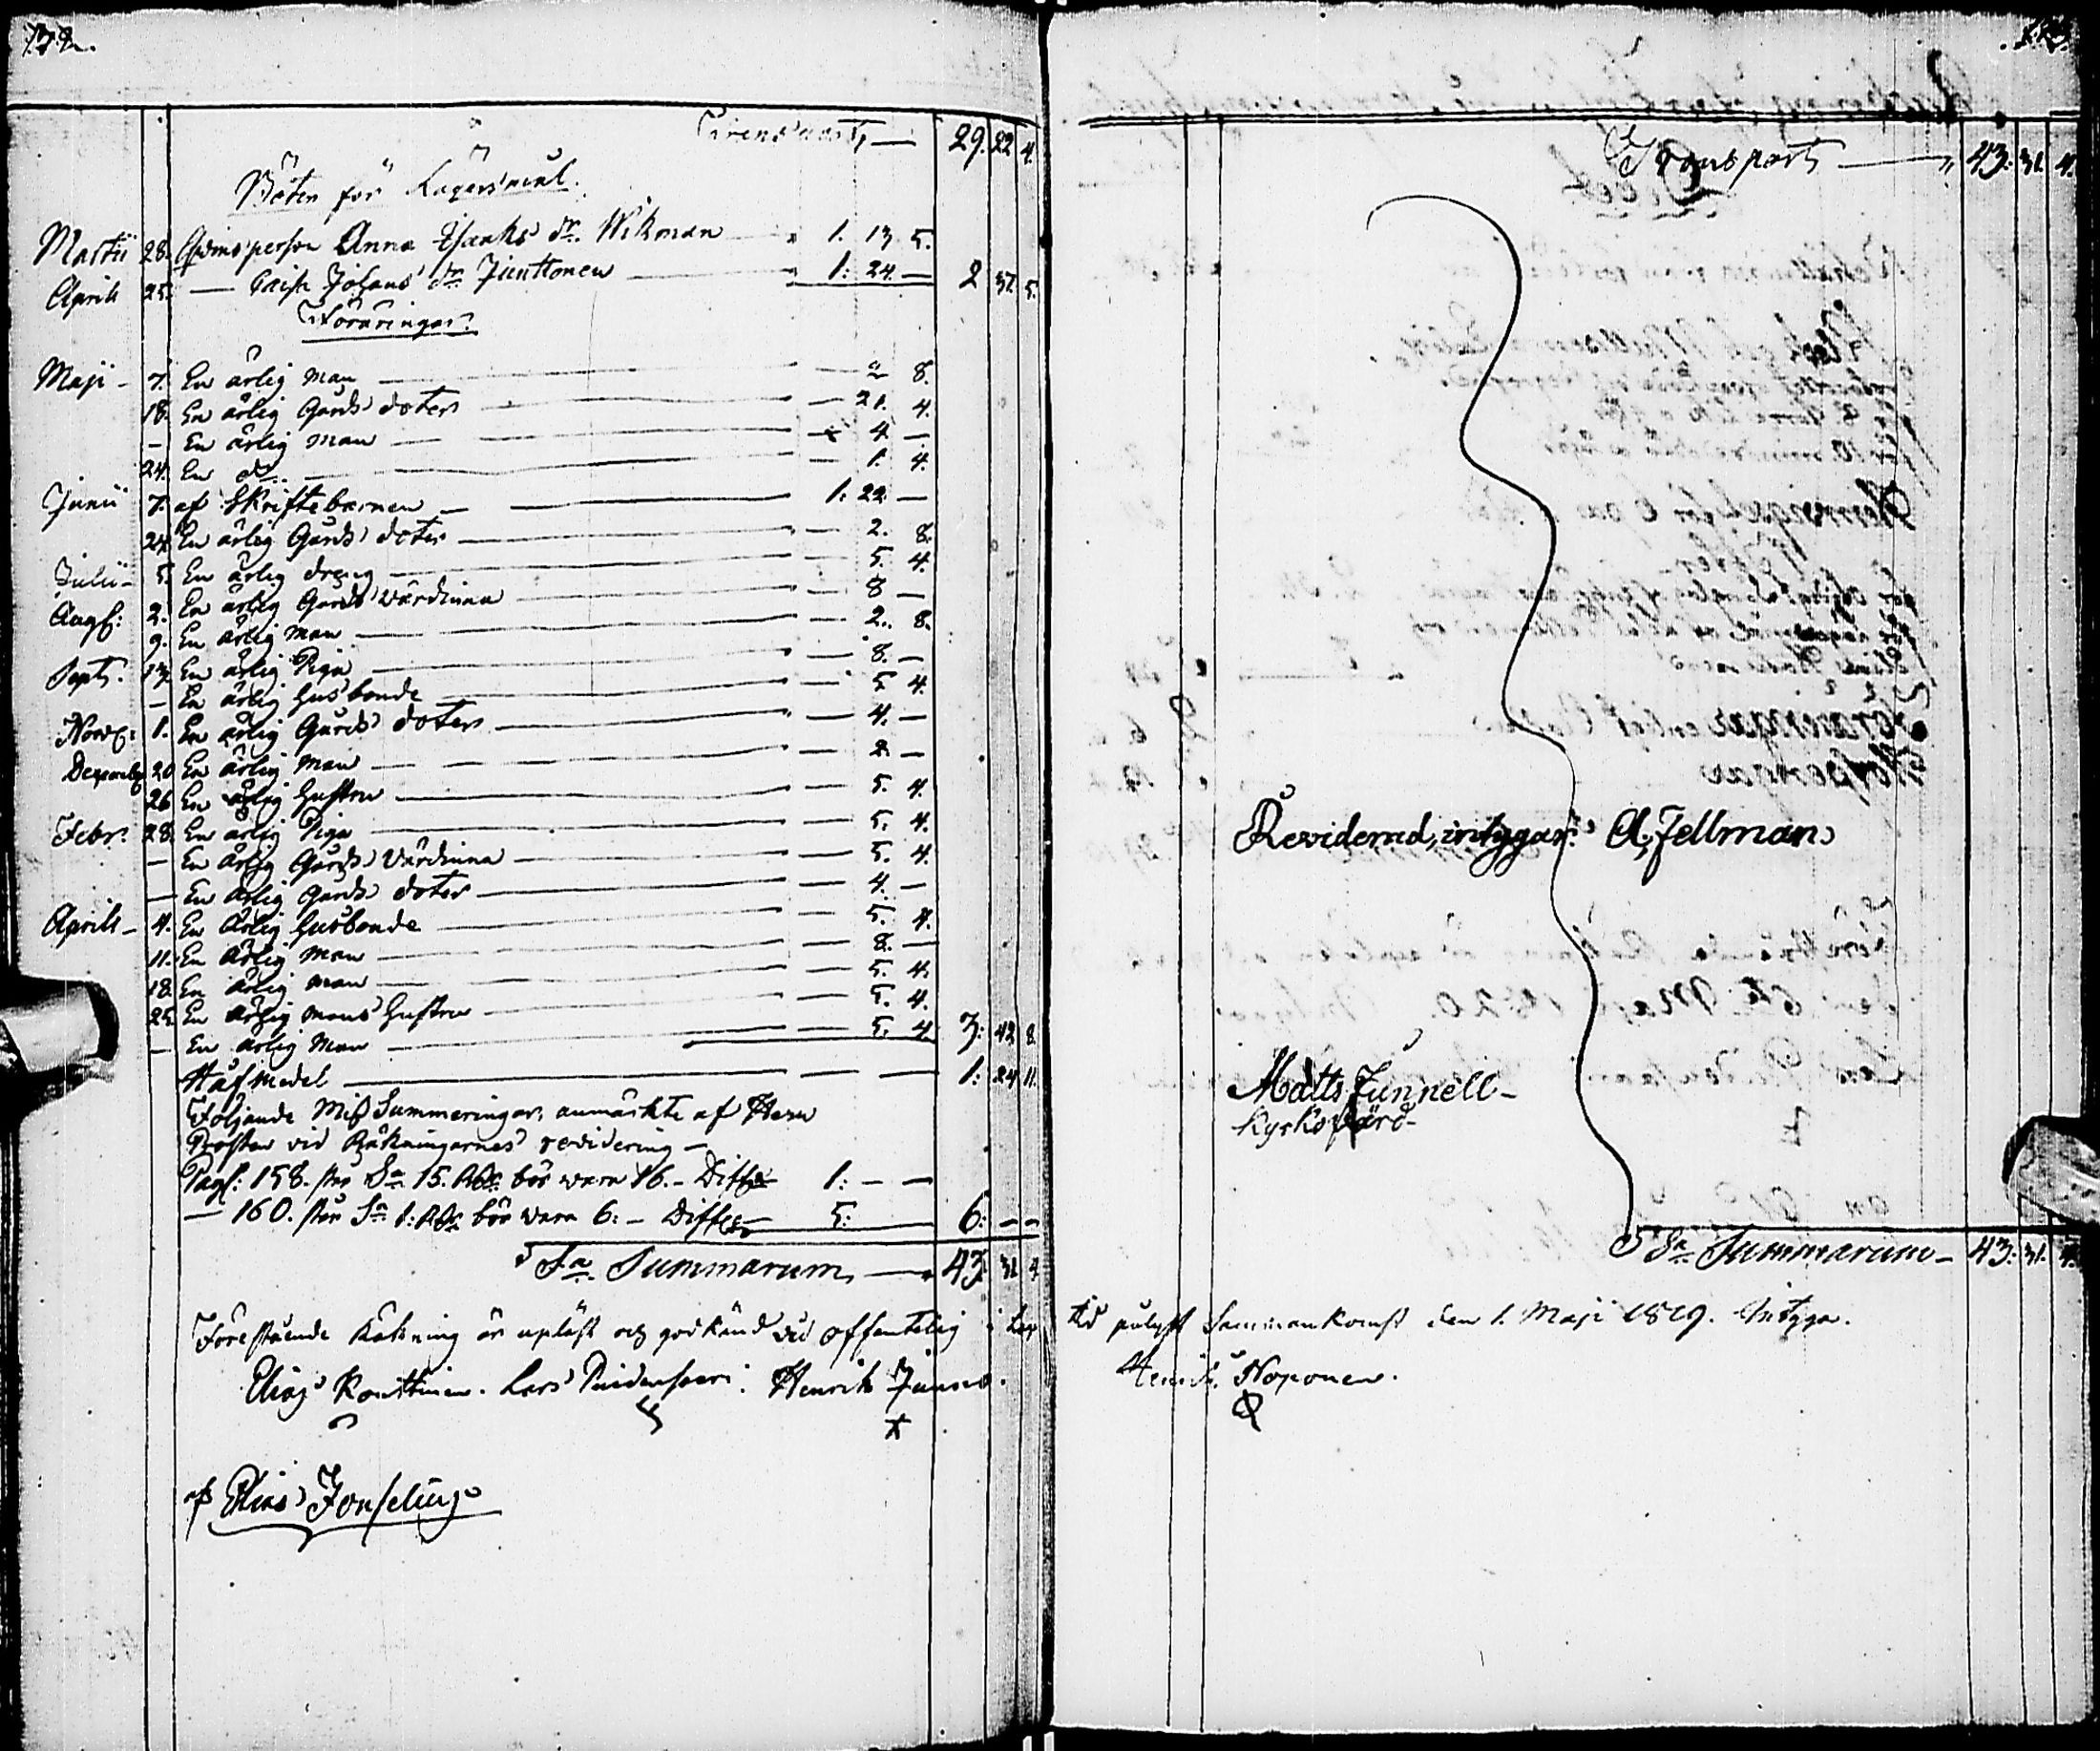 Transport — 29. 22 4.
Böter för Lägersmål.
Martii 28. Qvinsperson Anna Isaks dr. Wikman — 1. 13 5.
Aprili 25. — Caisa Johans dr Junttonen — 1: 24. — 2 37. 5.
Föräringar.
Maji - 7. En ärlig man — 2 8.
18. En ärlig Gårds doter — 21. 4.
— En ärlig man — 4 —
24. En do. — 1. 4.
Junii 7. af Skriftebarnen — 1: 22 —
24. En ärlig Gårds doter — 2. 8.
Julii - 5. En ärlig dreng — 5. 4.
Augs: 2. En ärlig Gårds värdinna — 8 —
9. En ärlig man — 2. 8.
Sept. 13. En ärlig Piga — 8. —
— En ärlig Husbonde — 5 4.
Nov: 1. En ärlig Gårds doter — 4. —
Decemb 20 En ärlig man — 2 —
26 En ärlig Hustru — 5. 4.
Febr. 28. En ärlig Piga — 5. 4.
— En ärlig Gårds Värdinna — 5. 4.
— En ärlig Gårds doter — 4. —
Aprili - 4. En Ärlig Husbonde — 5. 4.
11. En Ärlig Man — 8. —
18. En ärlig man — 5. 4.
25. En ärlig mans Hustru — 5. 4.
— En ärlig Man — 5. 4. 7: 42 8.
Håfmedel — 1: 24 11.
Följande Miss Summeringar, anmärkte af Herr
Prosten vid Räkningarnes revidering —
Pag: 158. står Sa 15. Rdr bör vara 16. - Differ 1: — —
— 160. står Sa 1: Rdr bör vara 6: - Differ 5: — 6: — —
Sa Summarum — 43: 31 4
Förestående Räkning är upläst och godkänd vid offentelig
Elias Konttinen. Lars Henrik
af Elias Jonselius
Transport — 43: 31. 4.
Reviderad, intygar A, Fellman
Matts Junnell -
Kyrkovärd -
Sa Summarum - 43: 31. 4.
pålyst Sammankomst den 1. Maji 1819. Intyga.
Henrik Noponen.